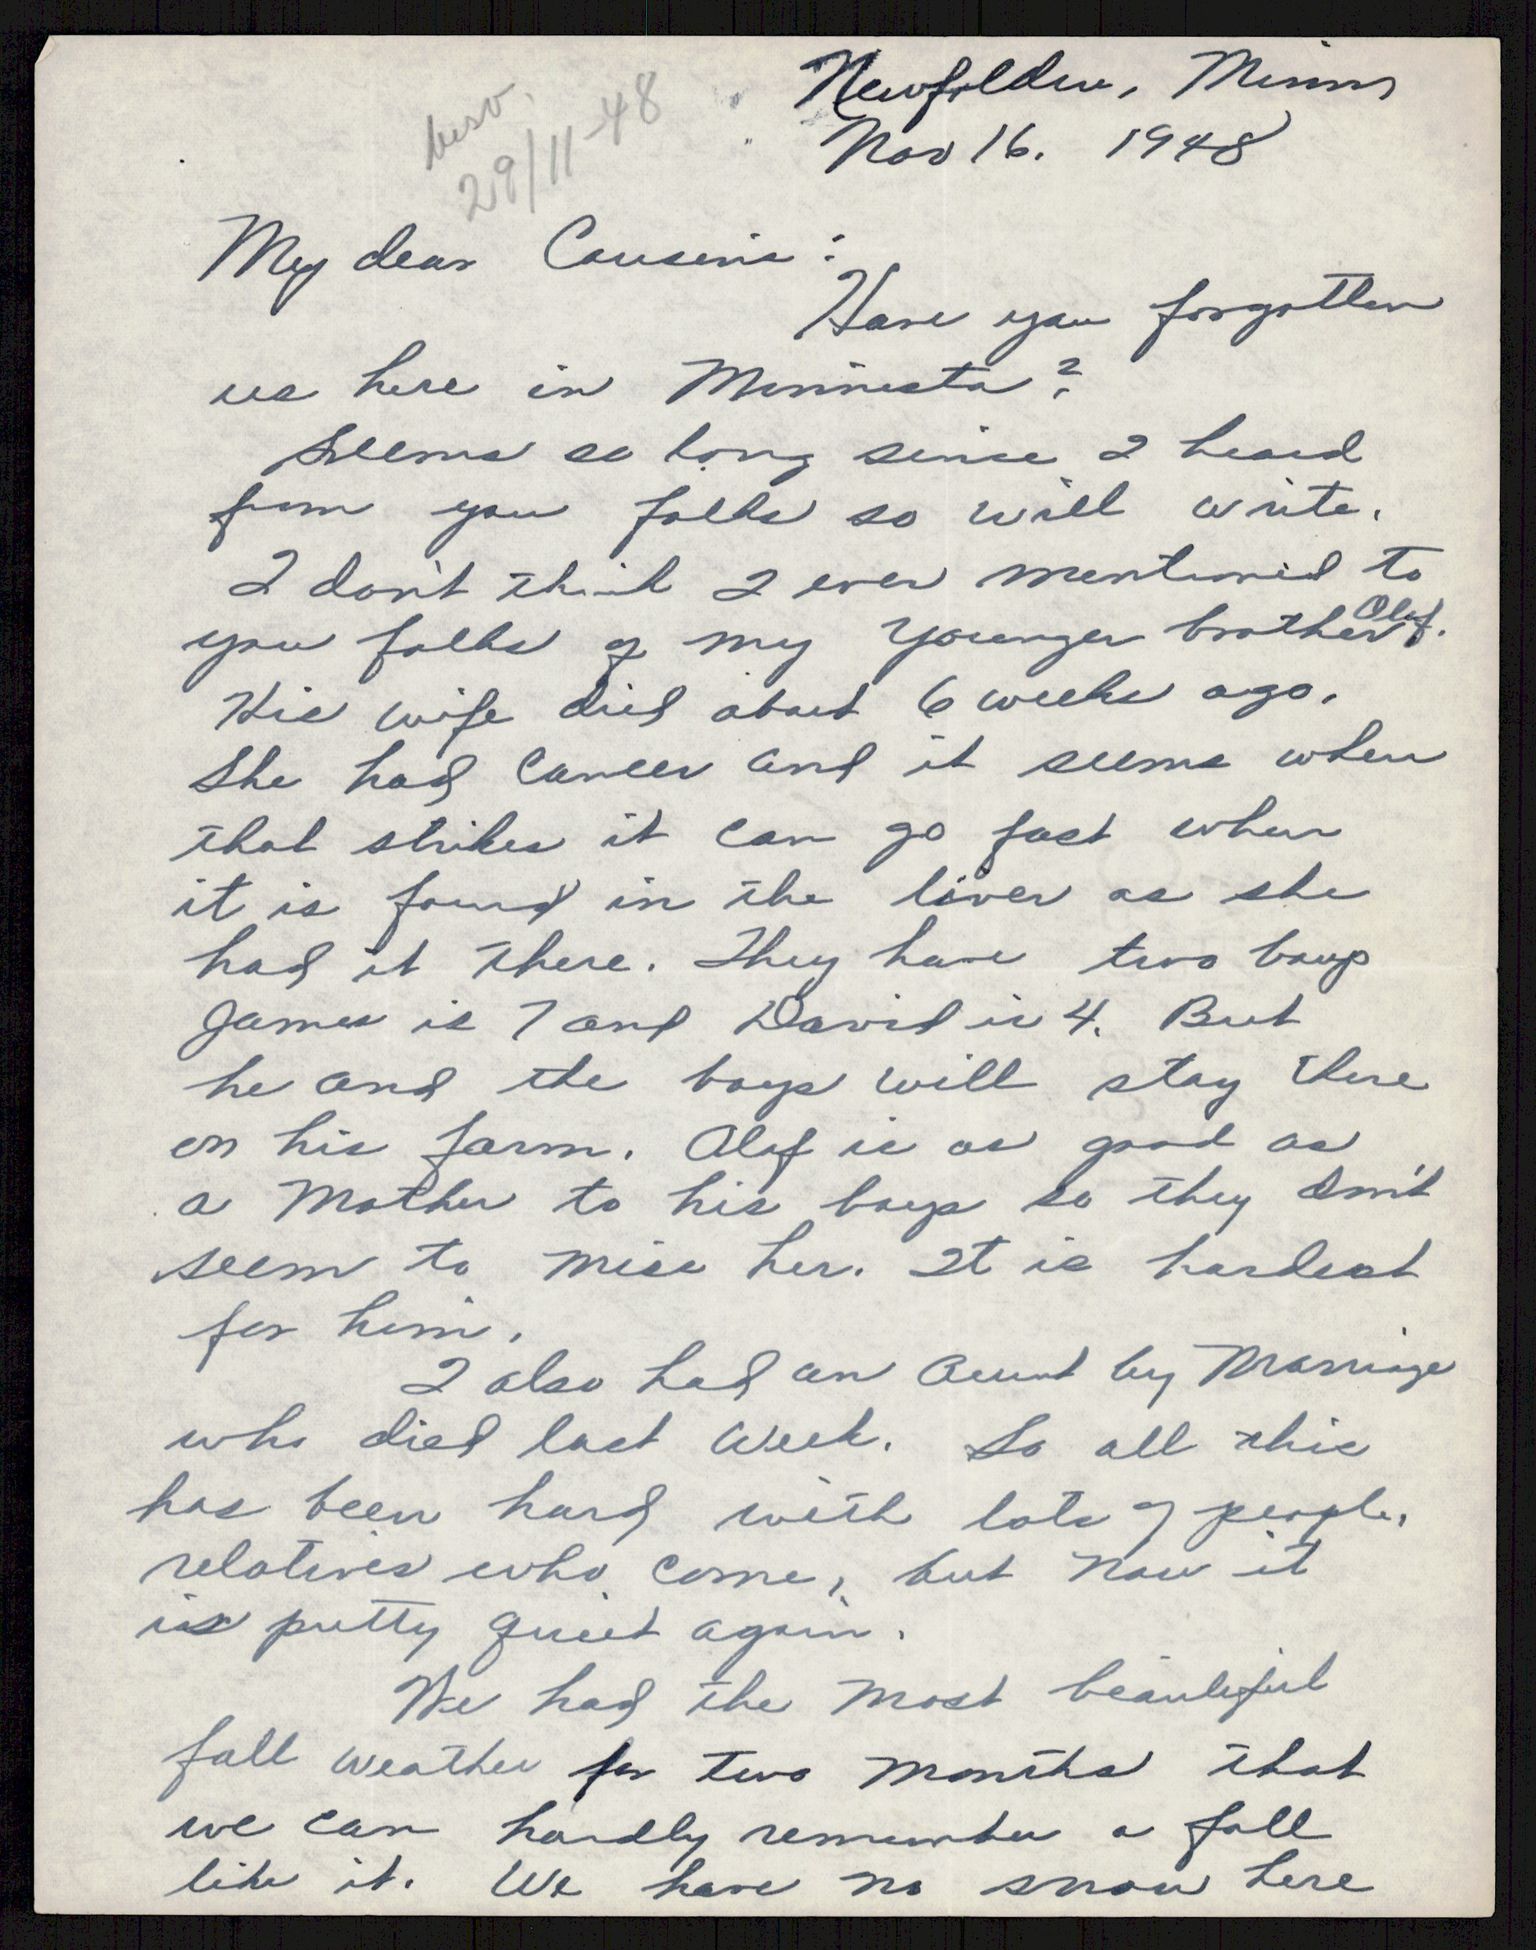 Newfolden, Minn
Nov 16. 1948
besv.
29/11-48
My dear Cousins:
Have you forgotten
us here in Minnesota?
Seems so long since I heard
from you folks so will write.
I don't think I ever mentioned to
you folks of my younger brother Olaf.
His wife died about 6 weeks ago.
She had cancer and it seems when
that strikes it can go fast when
it is found in the liver as she
had it there. They have two boys
James is 7 and David is 4. But
he and the boys will stay there
on his farm. Olaf is as good as
a Mother to his boys so they don't
seem to miss her. It is hardest
for him.
I also had an Aunt by Marriage
who died last week. So all this
has been hard with lots of people,
relatives who come, but now it
is pretty quiet again.
We had the most beautiful
fall weather for two months that
we can hardly remember a fall
like it. We have no snow here